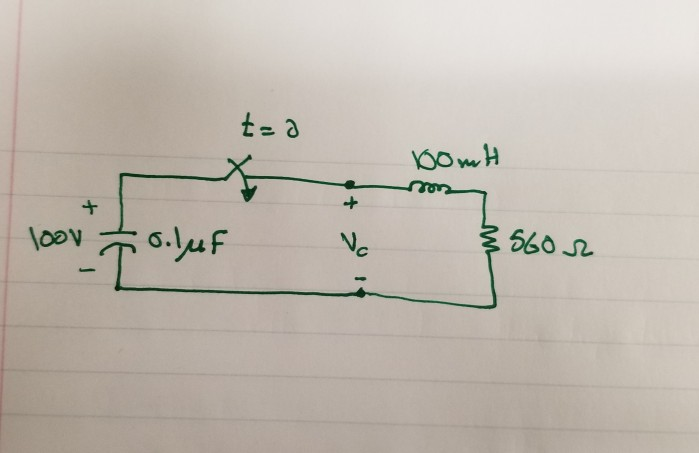 t = 0
100mH
+
100V
0.1µF
-
+
Vc
-
560 Ω